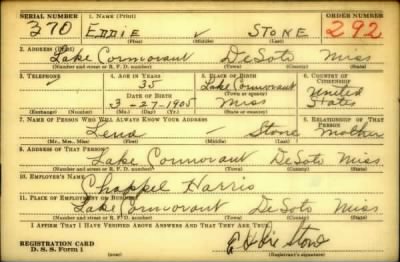 SERIAL NUMBER 1. NAME (Print) ORDER NUMBER
370 EDDIE STONE 292
2. ADDRESS (Print)
Lake Cormorant DeSoto Miss
(Number and street or R. F. D. number) (Town) (County) (State)
3. TELEPHONE 4. AGE IN YEARS 5. PLACE OF BIRTH 6. COUNTRY OF CITIZENSHIP
35 Lake Cormorant United
DATE OF BIRTH (Town or county)
3-27-1905 Miss States
(Exchange) (Number) (Mo.) (Day) (Yr.) (State or country)
7. NAME OF PERSON WHO WILL ALWAYS KNOW YOUR ADDRESS 8. RELATIONSHIP OF THAT PERSON
Lena Stone Mother
(Mr., Mrs., Miss) (First) (Middle) (Last)
9. ADDRESS OF THAT PERSON
Lake Cormorant DeSoto Miss
(Number and street or R. F. D. number) (Town) (County) (State)
10. EMPLOYER'S NAME
Chappel Harris
11. PLACE OF EMPLOYMENT OR BUSINESS
Lake Cormorant DeSoto Miss
(Number and street or R. F. D. number) (Town) (County) (State)
I AFFIRM THAT I HAVE VERIFIED ABOVE ANSWERS AND THAT THEY ARE TRUE.
REGISTRATION CARD
D. S. S. Form 1 (Registrant's signature)